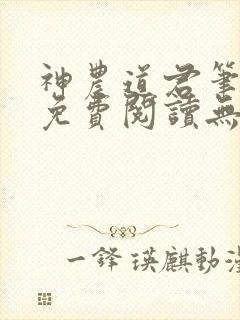 神農道君筆
免費閱讀無
一鋒瑛麒動漫